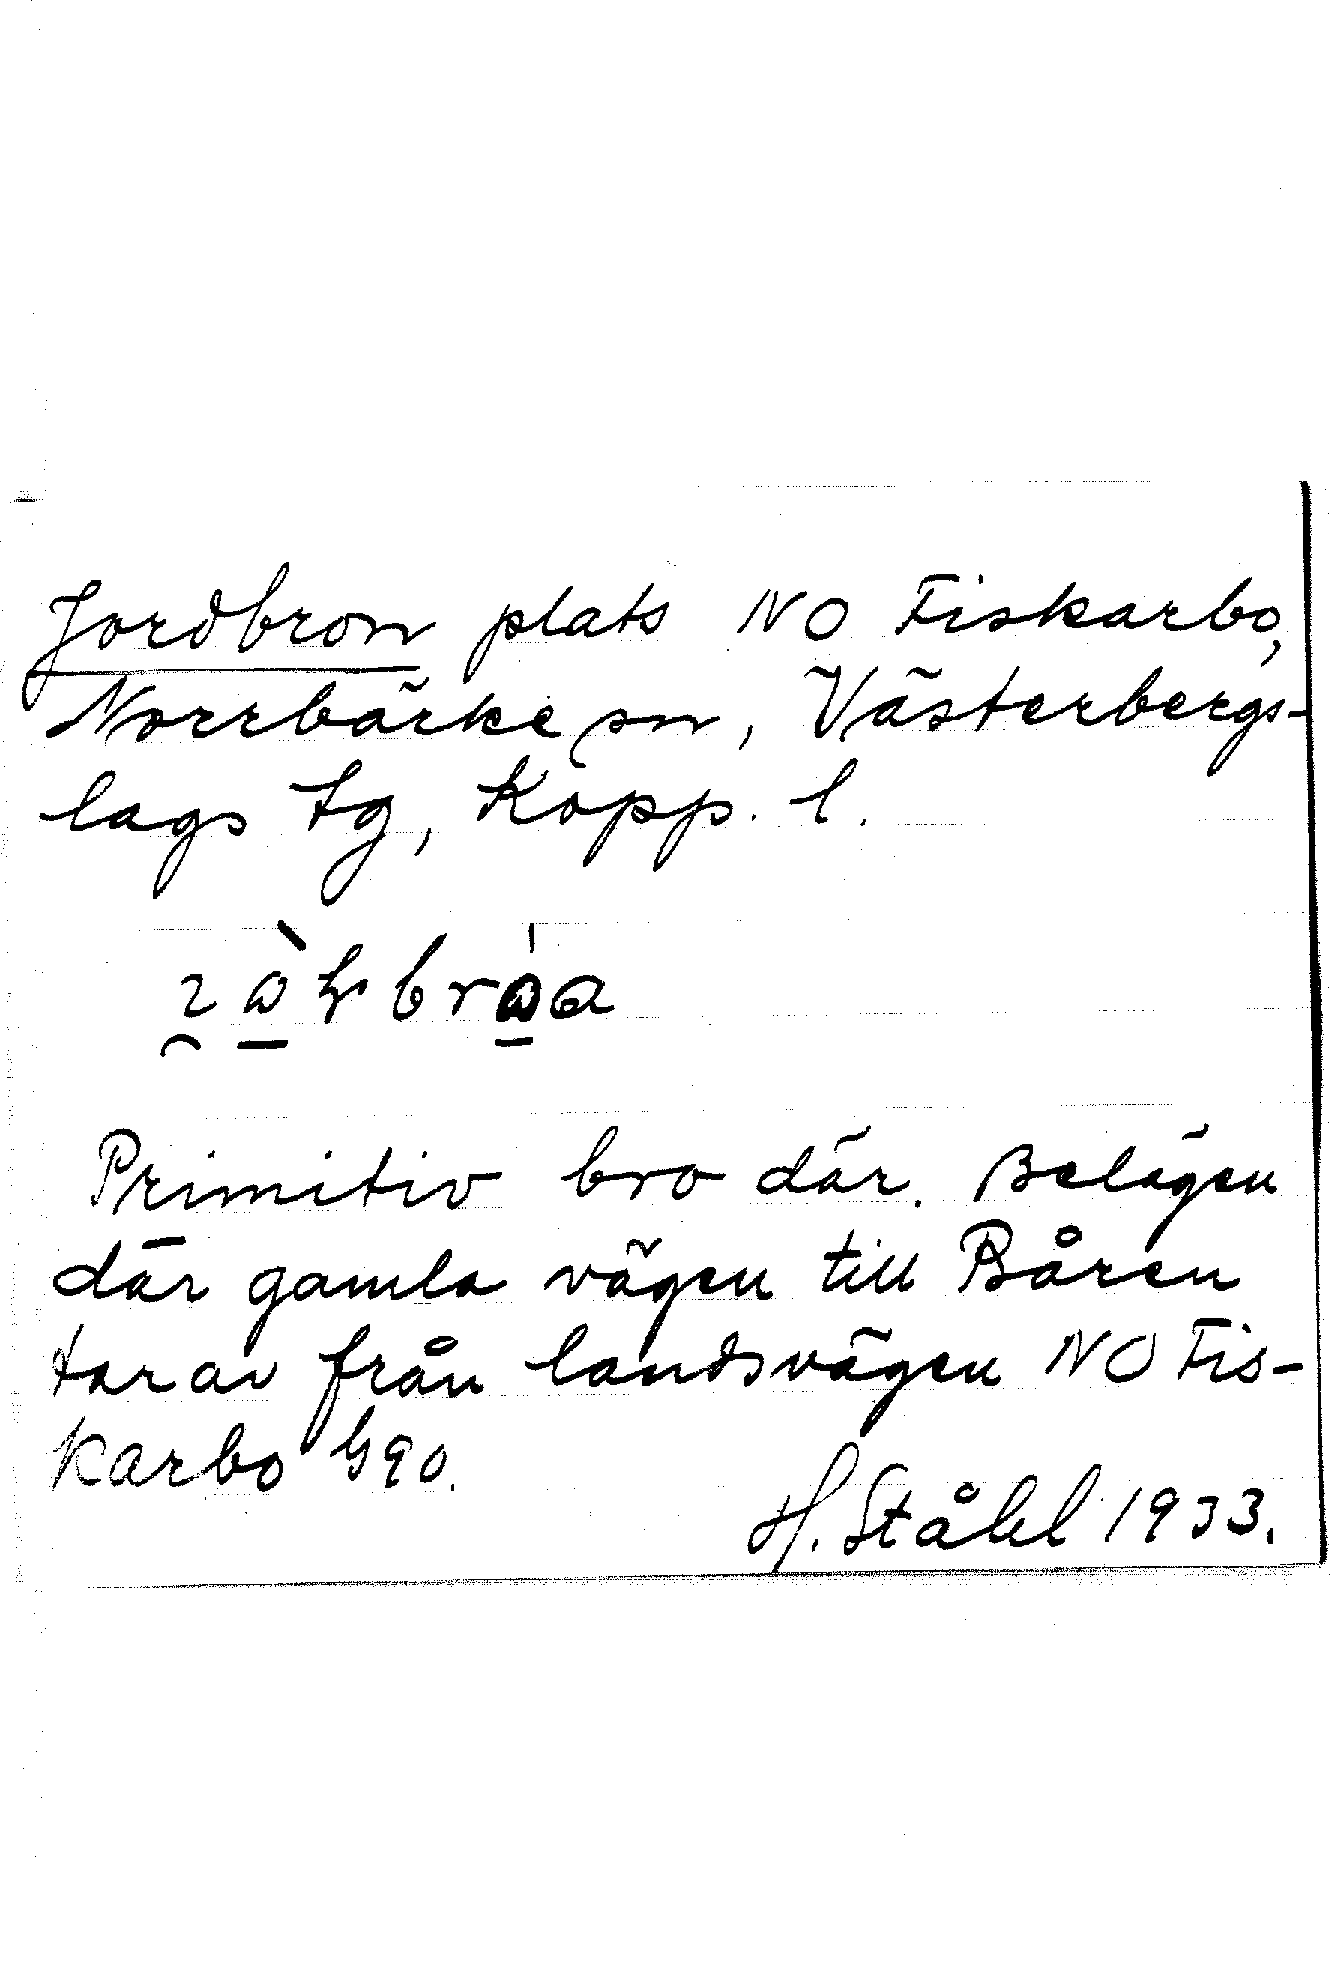 Jordbron plats NO Fiskarbo,
Norrbärke sn, Västerbergs-
lags tg, Kopp. l.
Primitiv bro där. Belägen
där gamla vägen till Båren
tar av från landsvägen NO Fis-
karbo G90.
H. Ståhl 1933.